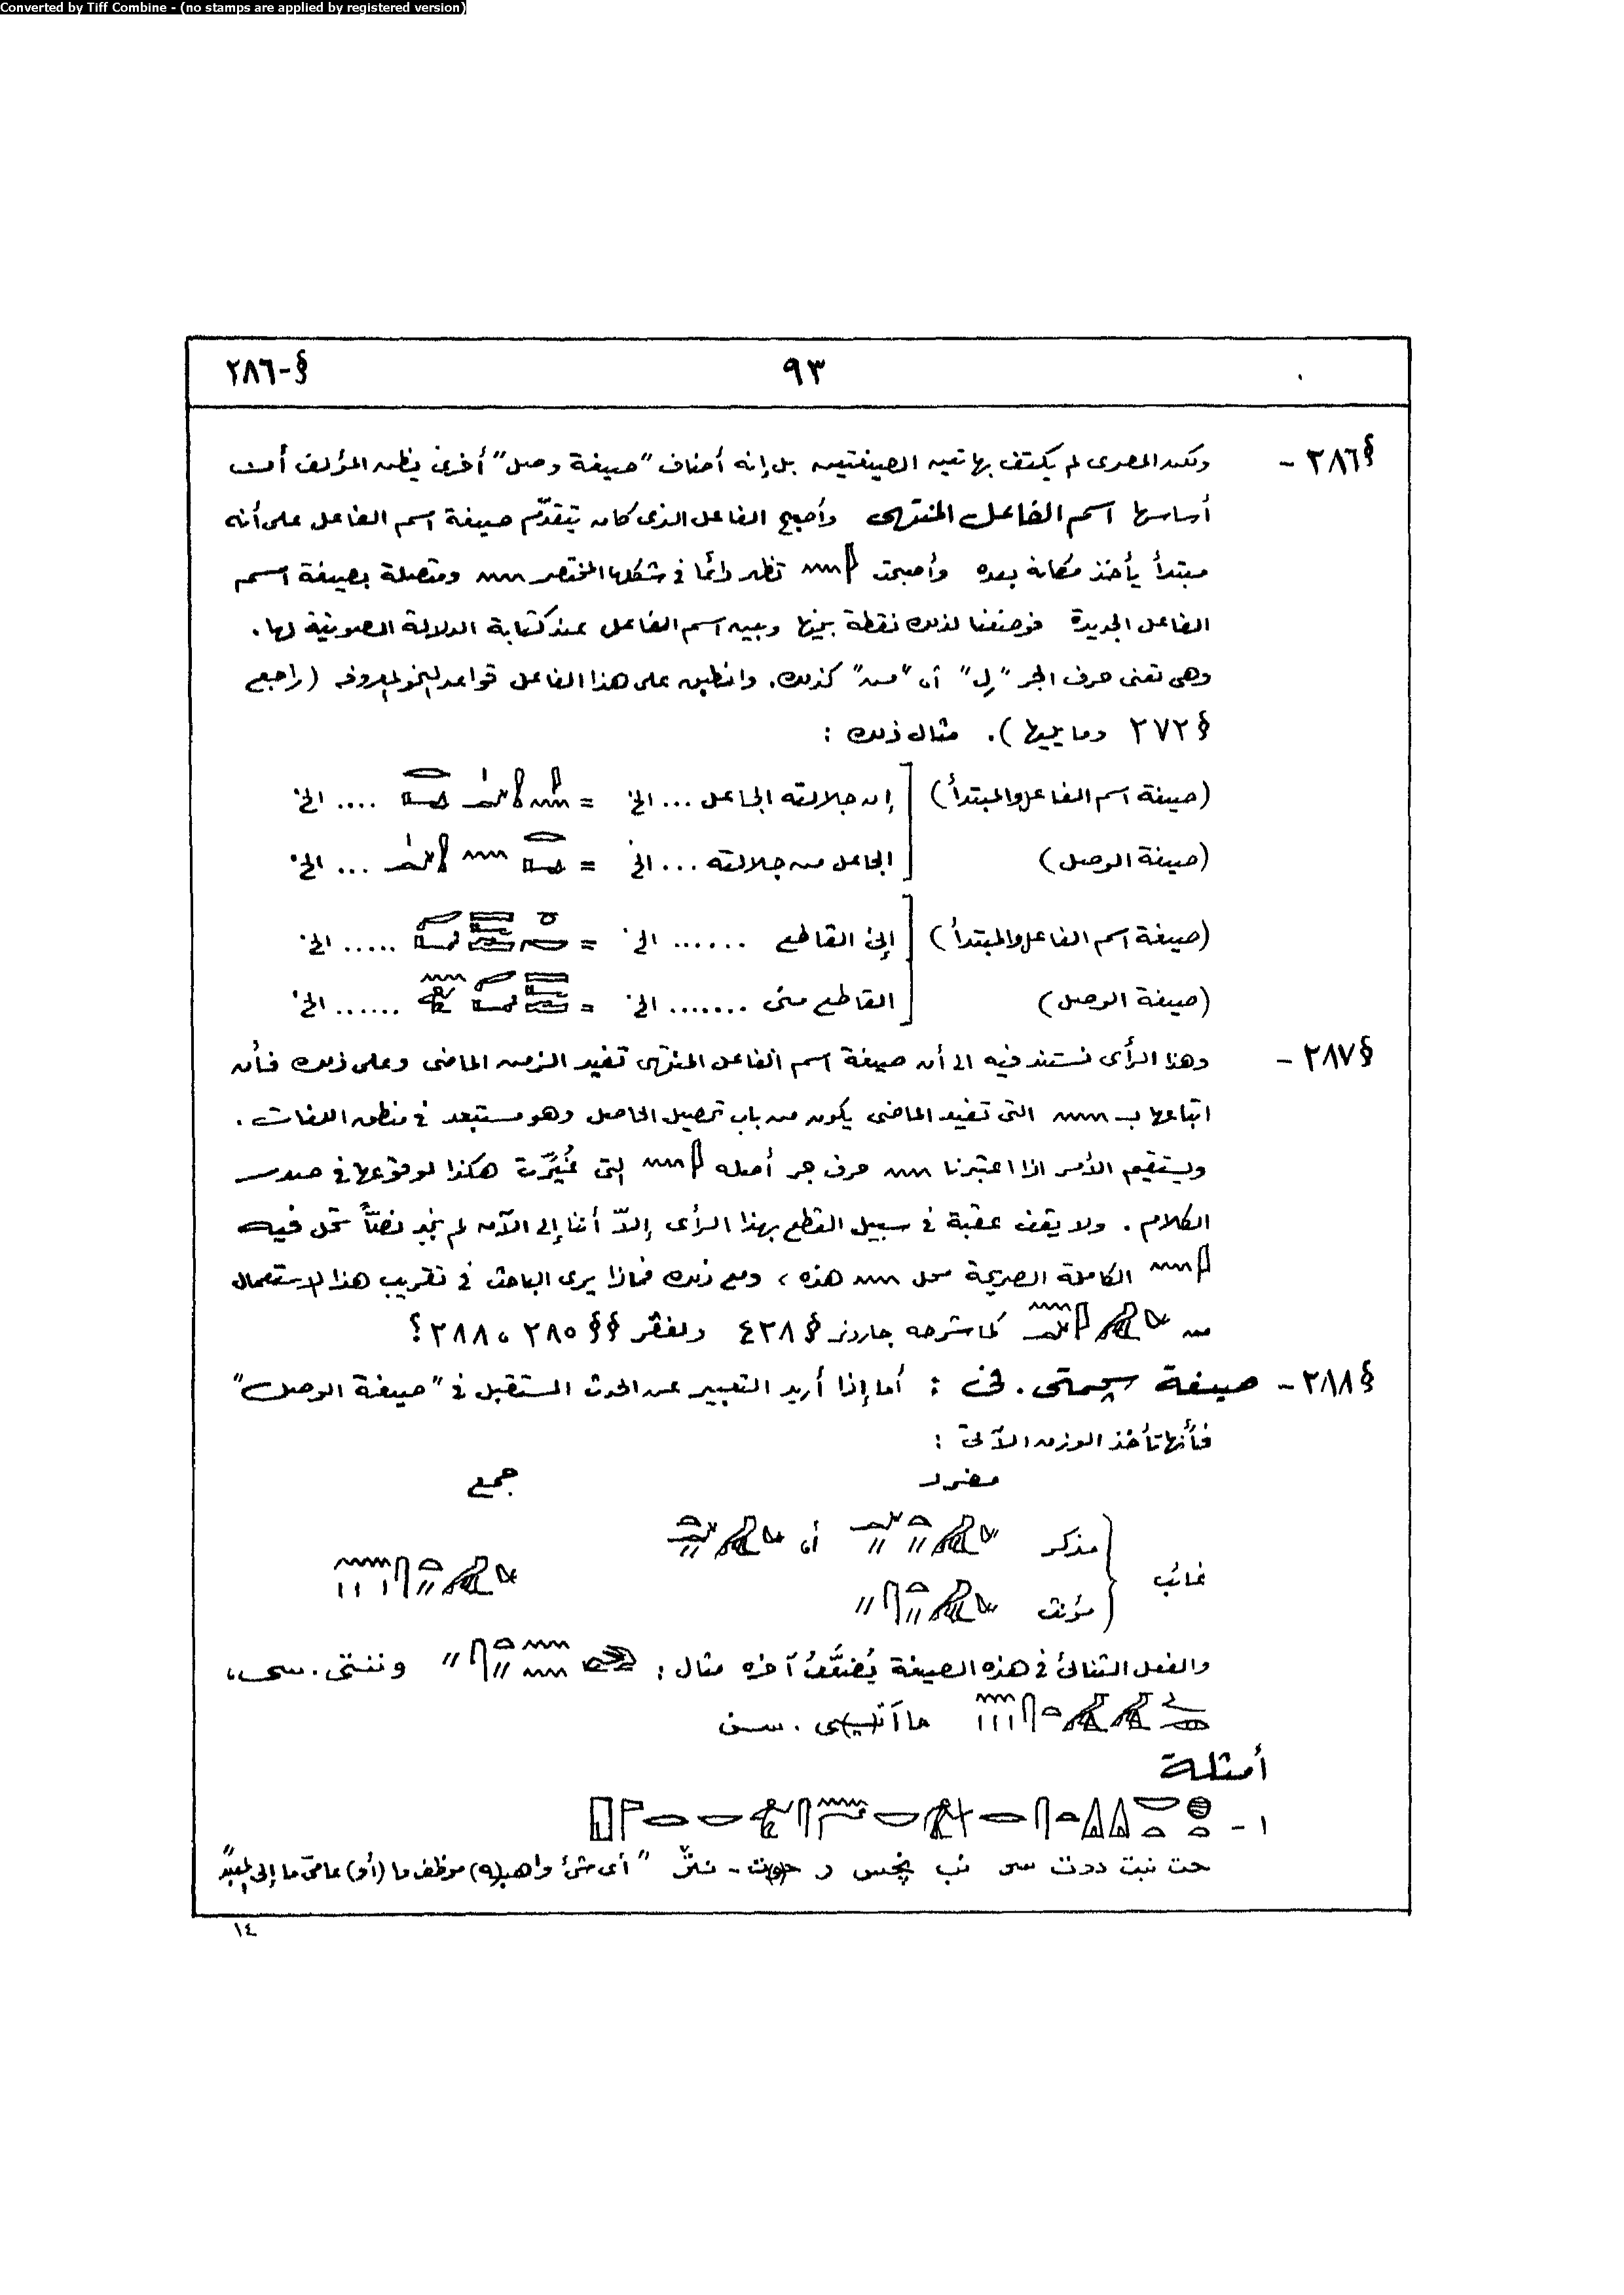 Converted by Tiff Combine - (no stamps are applied by registered version)
§-٢٨٦ ٩٣
§٢٨٦- ولكن المصرى لم يكتف بهاتين الصيغتين بل إنه أضاف "صيغة وصل" أخرى يظن المؤلف أن
أساسها اسم الفاعل المنتهى وأصبح الفاعل الذى كان يتقدّم صيغة اسم الفاعل على أنه
مبتدأ يأخذ مكانه بعده وأصبحت تظهر دائما فى شكلها المختصر ومتصلة بصيغة اسم
الفاعل الجديدة فوضعنا لذلك نقطة بينها وبين اسم الفاعل عند كتابة الدلالة الصوتية لها.
وهى تعنى حرف الجر "لِ" أو "من" كذلك. وانطبق على هذا الفاعل قواعد النحو المعروفه (راجع
§ ٢٧٢ وما يليها). مثال ذلك :
(صيغة اسم الفاعل والمبتدأ) إن جلالته الجاعل ... الخ = .... الخ
(صيغة الوصل) الجاعل من جلالته ... الخ = ... الخ
(صيغة اسم الفاعل والمبتدأ) إنى القاطع ...... الخ = ..... الخ
(صيغة الوصل) القاطع منى ....... الخ = ...... الخ
§٢٨٧- وهذا الرأى نستند فيه الى أن صيغة اسم الفاعل المنتهى تفيد الزمن الماضى وعلى ذلك فأن
اتباعها بـ التى تفيد الماضى يكون من باب تحصيل الحاصل وهو مستبعد فى منطق اللغات.
ويستقيم الأمر اذا اعتبرنا حرف جر أصله التى غُيِّرت هكذا لوقوعها فى صدر
الكلام. ولا يقف عقبة فى سبيل القطع بهذا الرأى إلاّ أننا إلى الآن لم نجد نصّاً تحل فيه
الكاملة الصريحة محل هذه، ومع ذلك فماذا يرى الباحث فى تقريب هذا الاستعمال
من كما شرحه جاردنر § ٤٣٨ ولفڤر §§ ٢٨٥، ٢٨٨؟
§٢٨٨- صيغة سچمتى. فى : أما إذا أريد التعبير عن الحدث المستقبل فى "صيغة الوصل"
فأنها تأخذ الوزن الآتى :
مفرد جمع
غائب مذكر أو
مؤنث
والفعل الثنائى فى هذه الصيغة يُضعَّفُ آخره مثال : وننتى. سى،
. سن
أمثلة
١-
خت نبت ددت سى نب نچس ر "أى شئ واهب(ه) موظف ما (أو) عامىّ ما إلى المعبد
١٤